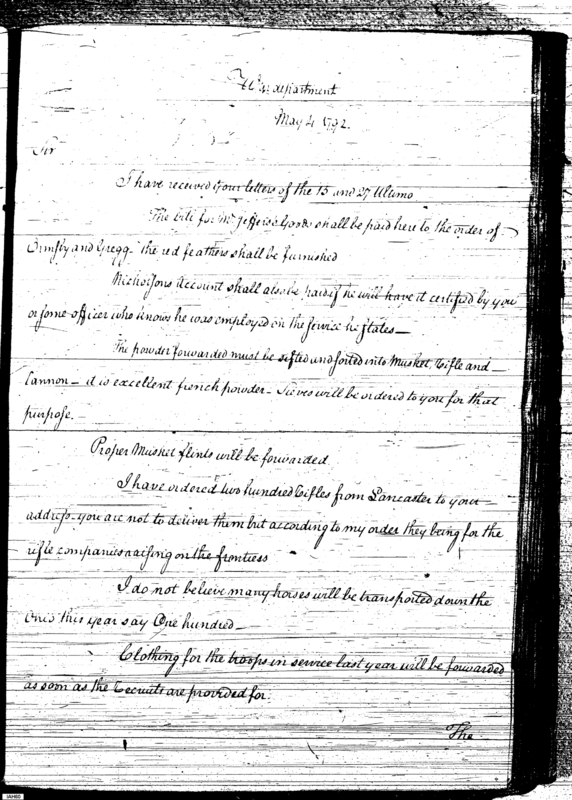 War department
May 4 1792.
Sir
I have received your letters of the 15 and 27 Ultimo
The bill for Mr Jeffers's Goods shall be paid here to the order of
Ormsby and Gregg - the red feathers shall be furnished
Nicholsons Account shall also be paid if he will have it certified by you
or some officer who knows he was employed on the service he states—
The powder forwarded must be sifted and sorted into Musket, Rifle and
Cannon - it is excellent french powder - Sieves will be ordered to you for that
purpose. -
Proper Musket flints will be forwarded
I have ordered two hundred Rifles from Lancaster to your
address - you are not to deliver them but according to my order they being for the
rifle companies raising on the frontiers
I do not believe many horses will be transported down the
Ohio this year say One hundred -
Clothing for the troops in service last year will be forwarded
as soon as the Recruits are provided for.
The
IAH60